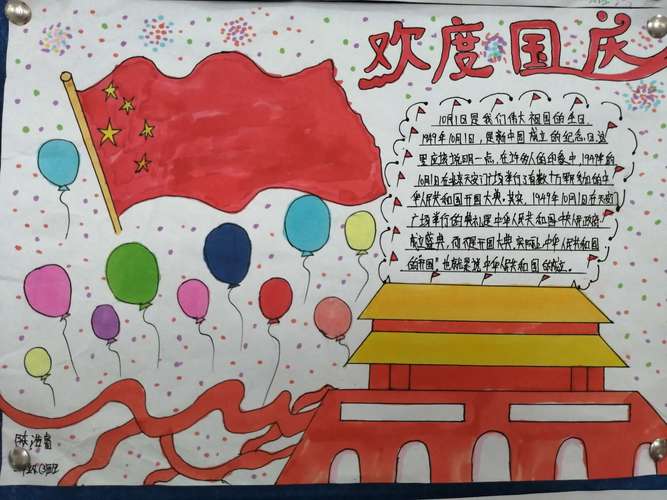 欢度国庆
10月1日是我们伟大祖国的生日
1949年10月1日，是新中国成立的纪念日。这
里应该说明一点，在许多人的印象中，1949年的
10月1日在北京天安门广场举行了有数十万军民参加的中
华人民共和国开国大典。其实，1949年10月1日在天安门
广场举行的典礼是中华人民共和国中央人民政府
成立盛典，而不是开国大典。实际上，中华人民共和国
的"开国"也就是说中华人民共和国的成立。